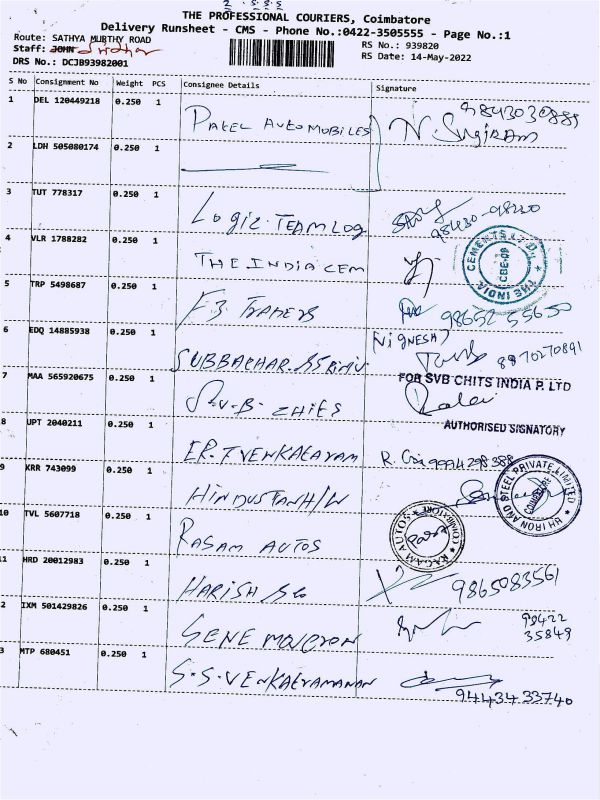 THE PROFESSIONAL COURIERS, Coimbatore
Delivery Runsheet - CMS - Phone No.:0422-3505555 - Page No.:1
Route: SATHYA MURTHY ROAD
RS No.: 939820
Staff: JOHN Sridhar
RS Date: 14-May-2022
DRS No.: DCJB93982001
S No Consignment No Weight PCS Consignee Details Signature
1 DEL 120449218 0.250 1 PATEL AUTOMOBILES N. Sugiram
2 LDH 505080174 0.250 1
3 TUT 778317 0.250 1 Logiz. TEAMLOG 98430-98230
4 VLR 1788282 0.250 1 THE INDIA CEM
THE INDIA CEMENTS LTD. CBE-09
5 TRP 5498687 0.250 1 F3 TRADERS 98652 55650
6 EDQ 14885938 0.250 1 (VIGNESH) 8870270891
7 MAA 565920675 0.250 1 S.V.B. CHITS
FOR SVB CHITS INDIA P. LTD
AUTHORISED SIGNATORY
8 UPT 2040211 0.250 1 ER. T. VENKATARAM 9994298388
9 KRR 743099 0.250 1 HINDUSTAN H/W
HH IRON AND STEEL PRIVATE LIMITED
10 TVL 5607718 0.250 1 RAGAM AUTOS
RAGAM AUTOS COIMBATORE
11 HRD 20012983 0.250 1 HARISH 9865083561
2 IXM 501429826 0.250 1 98422
35849
3 MTP 680451 0.250 1 S.S. VENKATRAMANAN
9444343 3740